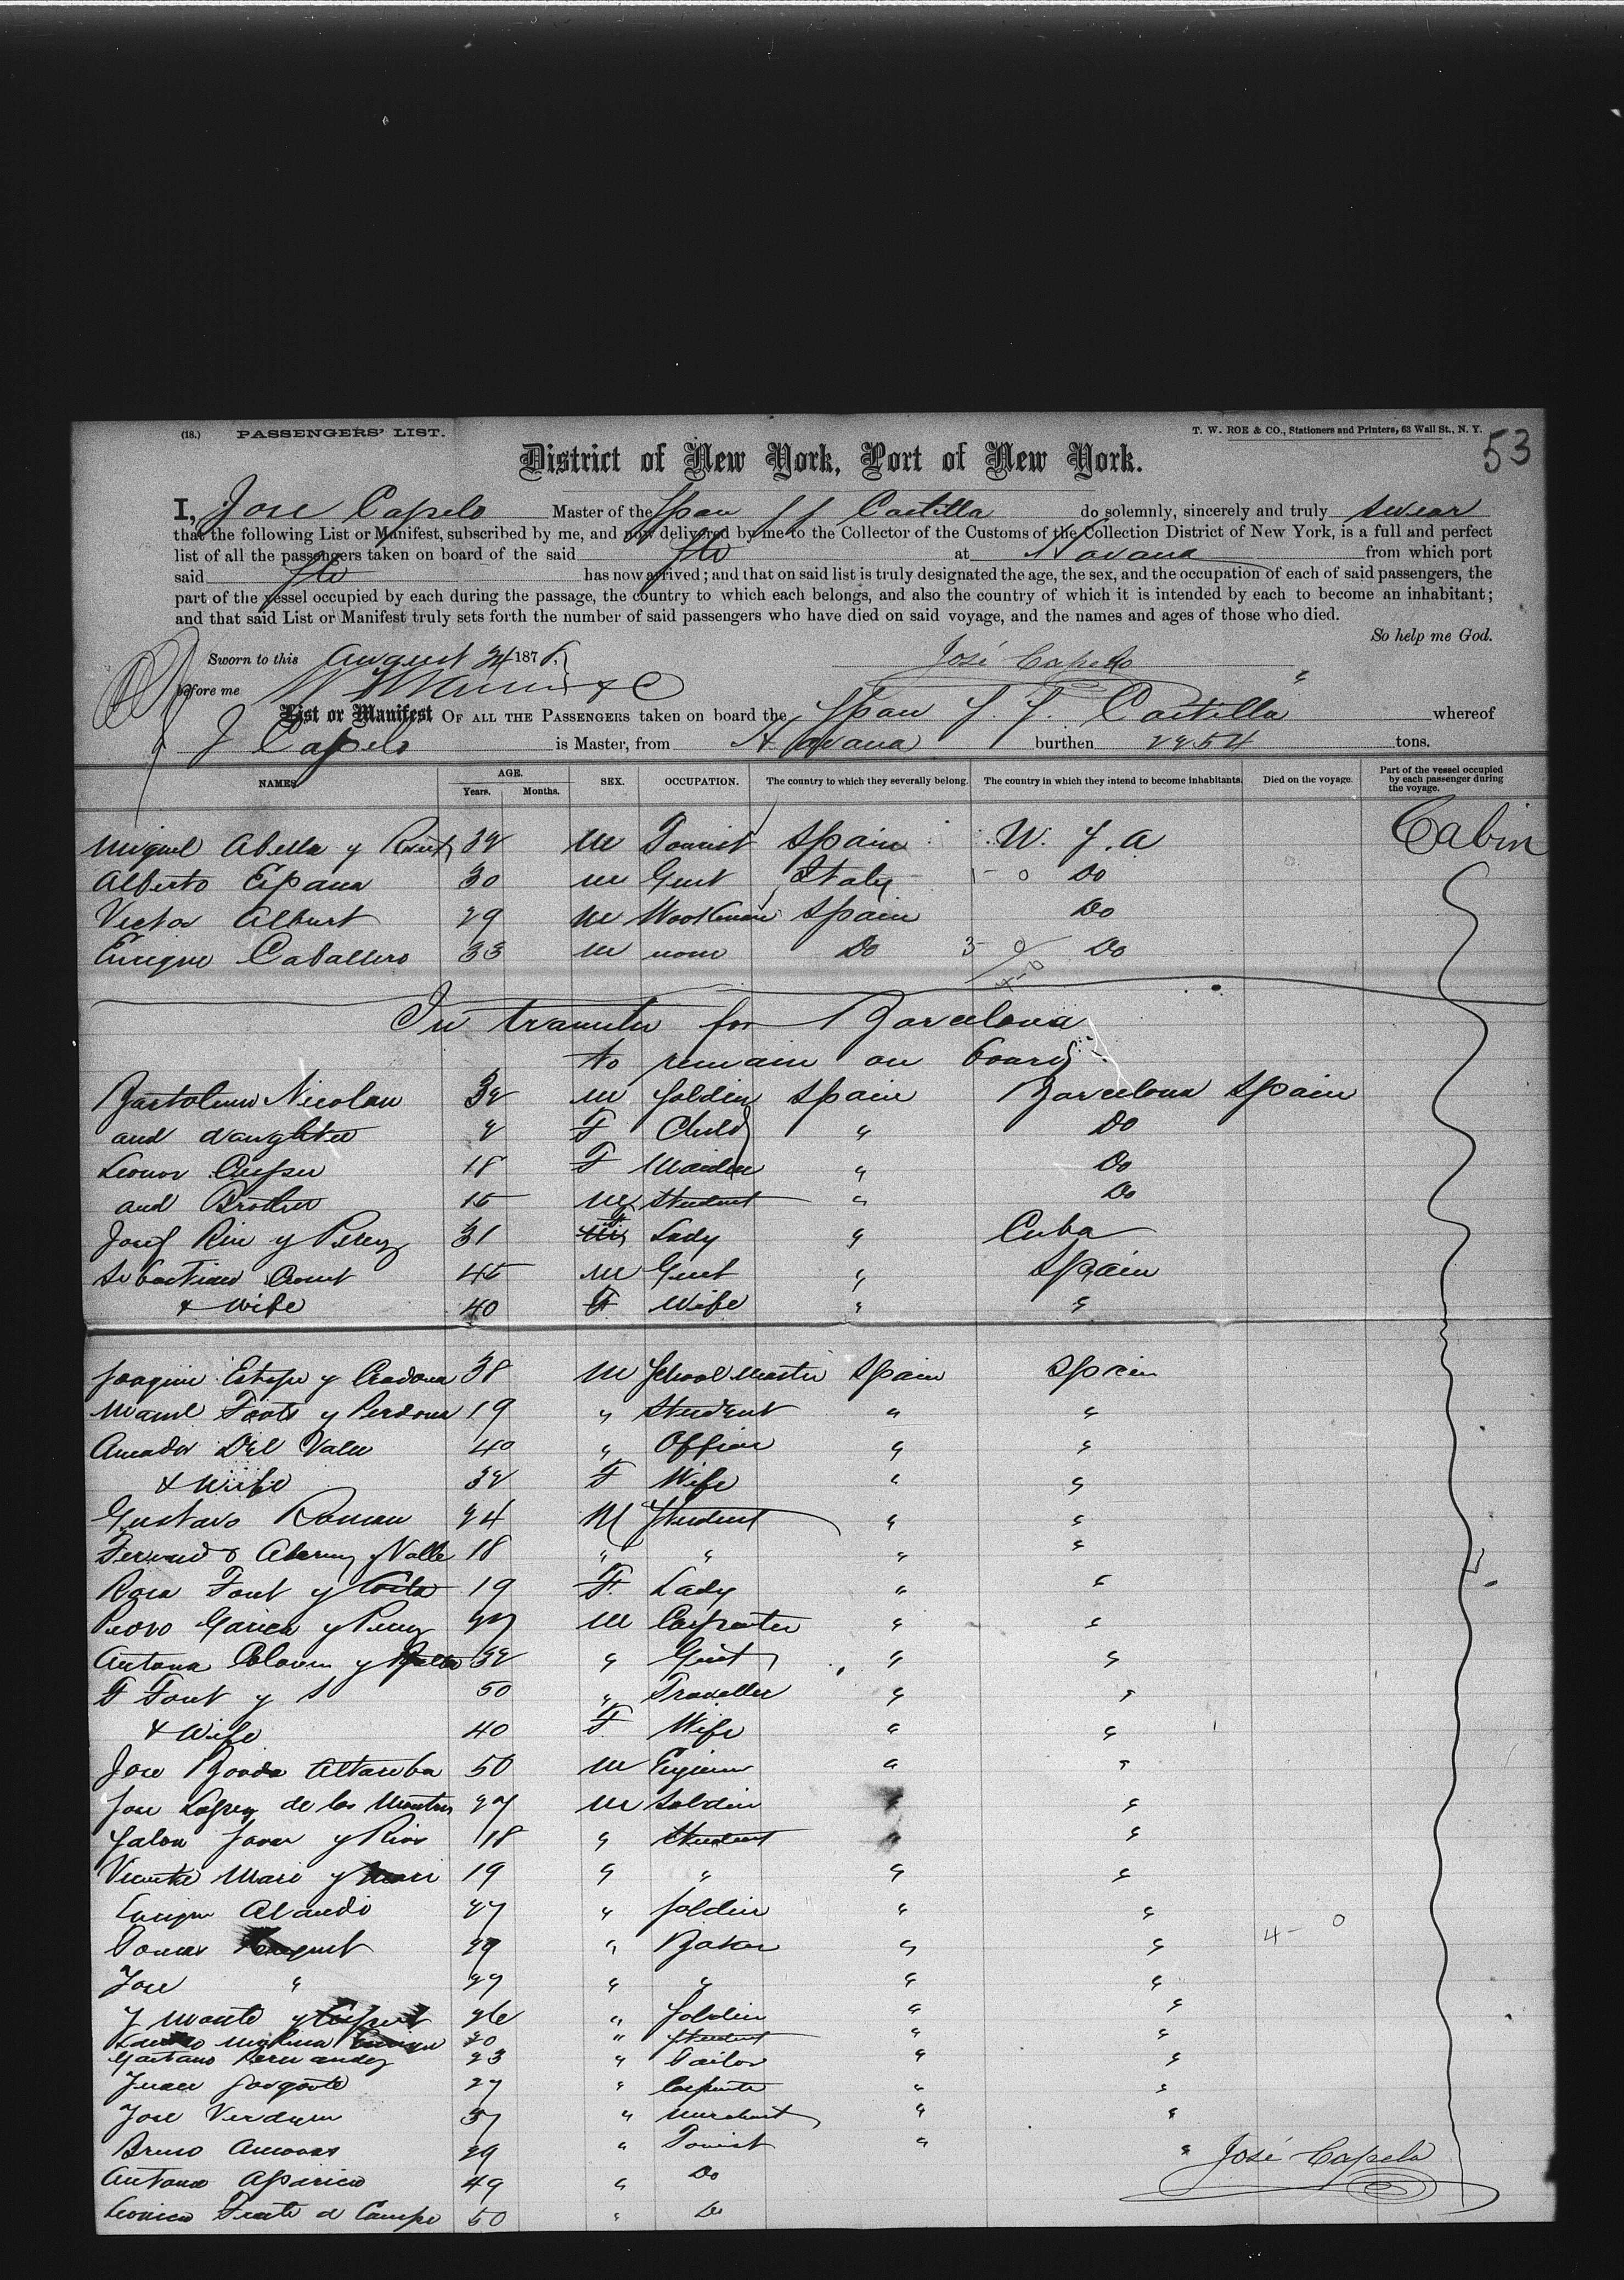 (18.) PASSENGERS' LIST. T. W. ROE & CO., Stationers and Printers, 63 Wall St., N. Y.
53
District of New York, Port of New York.
I, Jose Capelo Master of the Span SS Castilla do solemnly, sincerely and truly swear
that the following List or Manifest, subscribed by me, and now delivered by me to the Collector of the Customs of the Collection District of New York, is a full and perfect
list of all the passengers taken on board of the said Str at Havana from which port
said Str has now arrived; and that on said list is truly designated the age, the sex, and the occupation of each of said passengers, the
part of the vessel occupied by each during the passage, the country to which each belongs, and also the country of which it is intended by each to become an inhabitant;
and that said List or Manifest truly sets forth the number of said passengers who have died on said voyage, and the names and ages of those who died.
So help me God.
Sworn to this August 24 1878 José Capelo
before me
List or Manifest OF ALL THE PASSENGERS taken on board the Span S S. Castilla whereof
J Capelo is Master, from Havana burthen 2254 tons.
NAMES AGE. Years. Months. SEX. OCCUPATION. The country to which they severally belong. The country in which they intend to become inhabitants. Died on the voyage. Part of the vessel occupied by each passenger during the voyage.
Miguel Abella y 32 M Tourist Spain U. S. A Cabin
Alberto Espana 30 M Gent Italy 1-0 Do
Victor Albert 29 M Spain Do
Enrique Caballero 33 M none Do 3 0 Do
In transitu for Barcelona
to remain on board
Bartolome Nicolau 32 M Soldier Spain Barcelona Spain
and daughter 2 F Child " Do
Leonor 18 F Maiden " Do
and Brother 15 M Student " Do
Josef y Perez 31 F Lady " Cuba
Sebastian 45 M Gent " Spain
& Wife 40 F Wife " "
Joaquin y 38 M School Master Spain Spain
Manl y Perdona 19 " Student " "
Amador Del Valle 40 " Officer " "
& Wife 32 F Wife " "
Gustavo Roman 24 M Student " "
Fernando y Valle 18 " " " "
Rosa Font y Costa 19 F. Lady " "
Pedro Garica y Perez 27 M Carpenter " "
Antona y 32 " Gent " "
F Font y S 50 " Traveller " "
& Wife 40 F Wife " "
Jose Altareba 50 M Engineer " "
Jose Lopez de los Montes 27 M Soldier " "
y Rios 18 " Student " "
Vicente Mari y Mari 19 " " " "
Enrique 27 " Soldier " "
Tomas 29 " Baker " " 4- 0
Jose " 27 " " " "
J Monte y 26 " Soldier " "
Molina 20 " Student " "
Gaetano Fernandez 23 " Tailor " "
Juan 27 " Carpenter " "
Jose Verdum 37 " Merchant " "
Bruno 29 " Tourist " "
Antonio Aparicio 49 " Do
de Campo 50 " Do
José Capelo